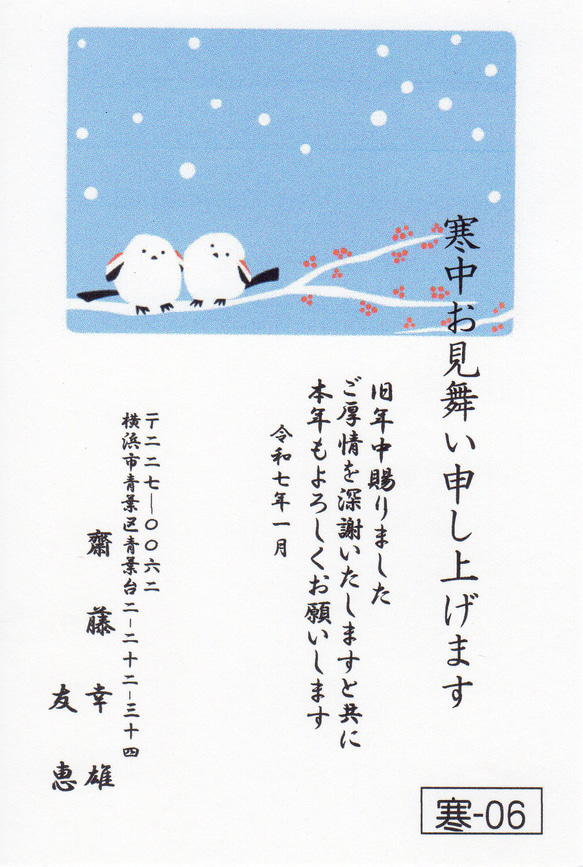 寒中お見舞い申し上げます
旧年中賜りました
ご厚情を深謝いたしますと共に
本年もよろしくお願いします
令和七年一月
〒二二七―〇〇六二
横浜市青葉区青葉台二−二十二−三十四
齋藤幸雄
友恵
寒-06